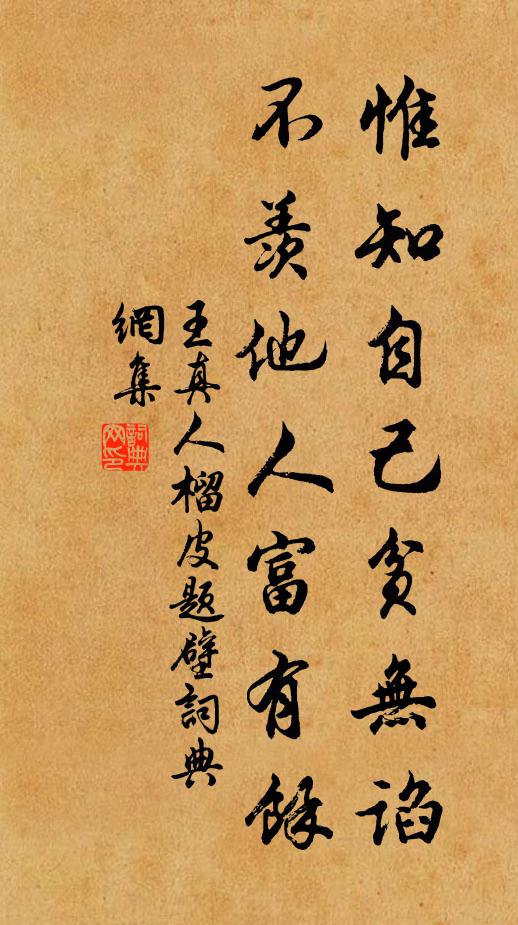 惟知自己貧無諂
不羨他人富有餘
王真人榴皮題壁詞典
網集
詞典
网印